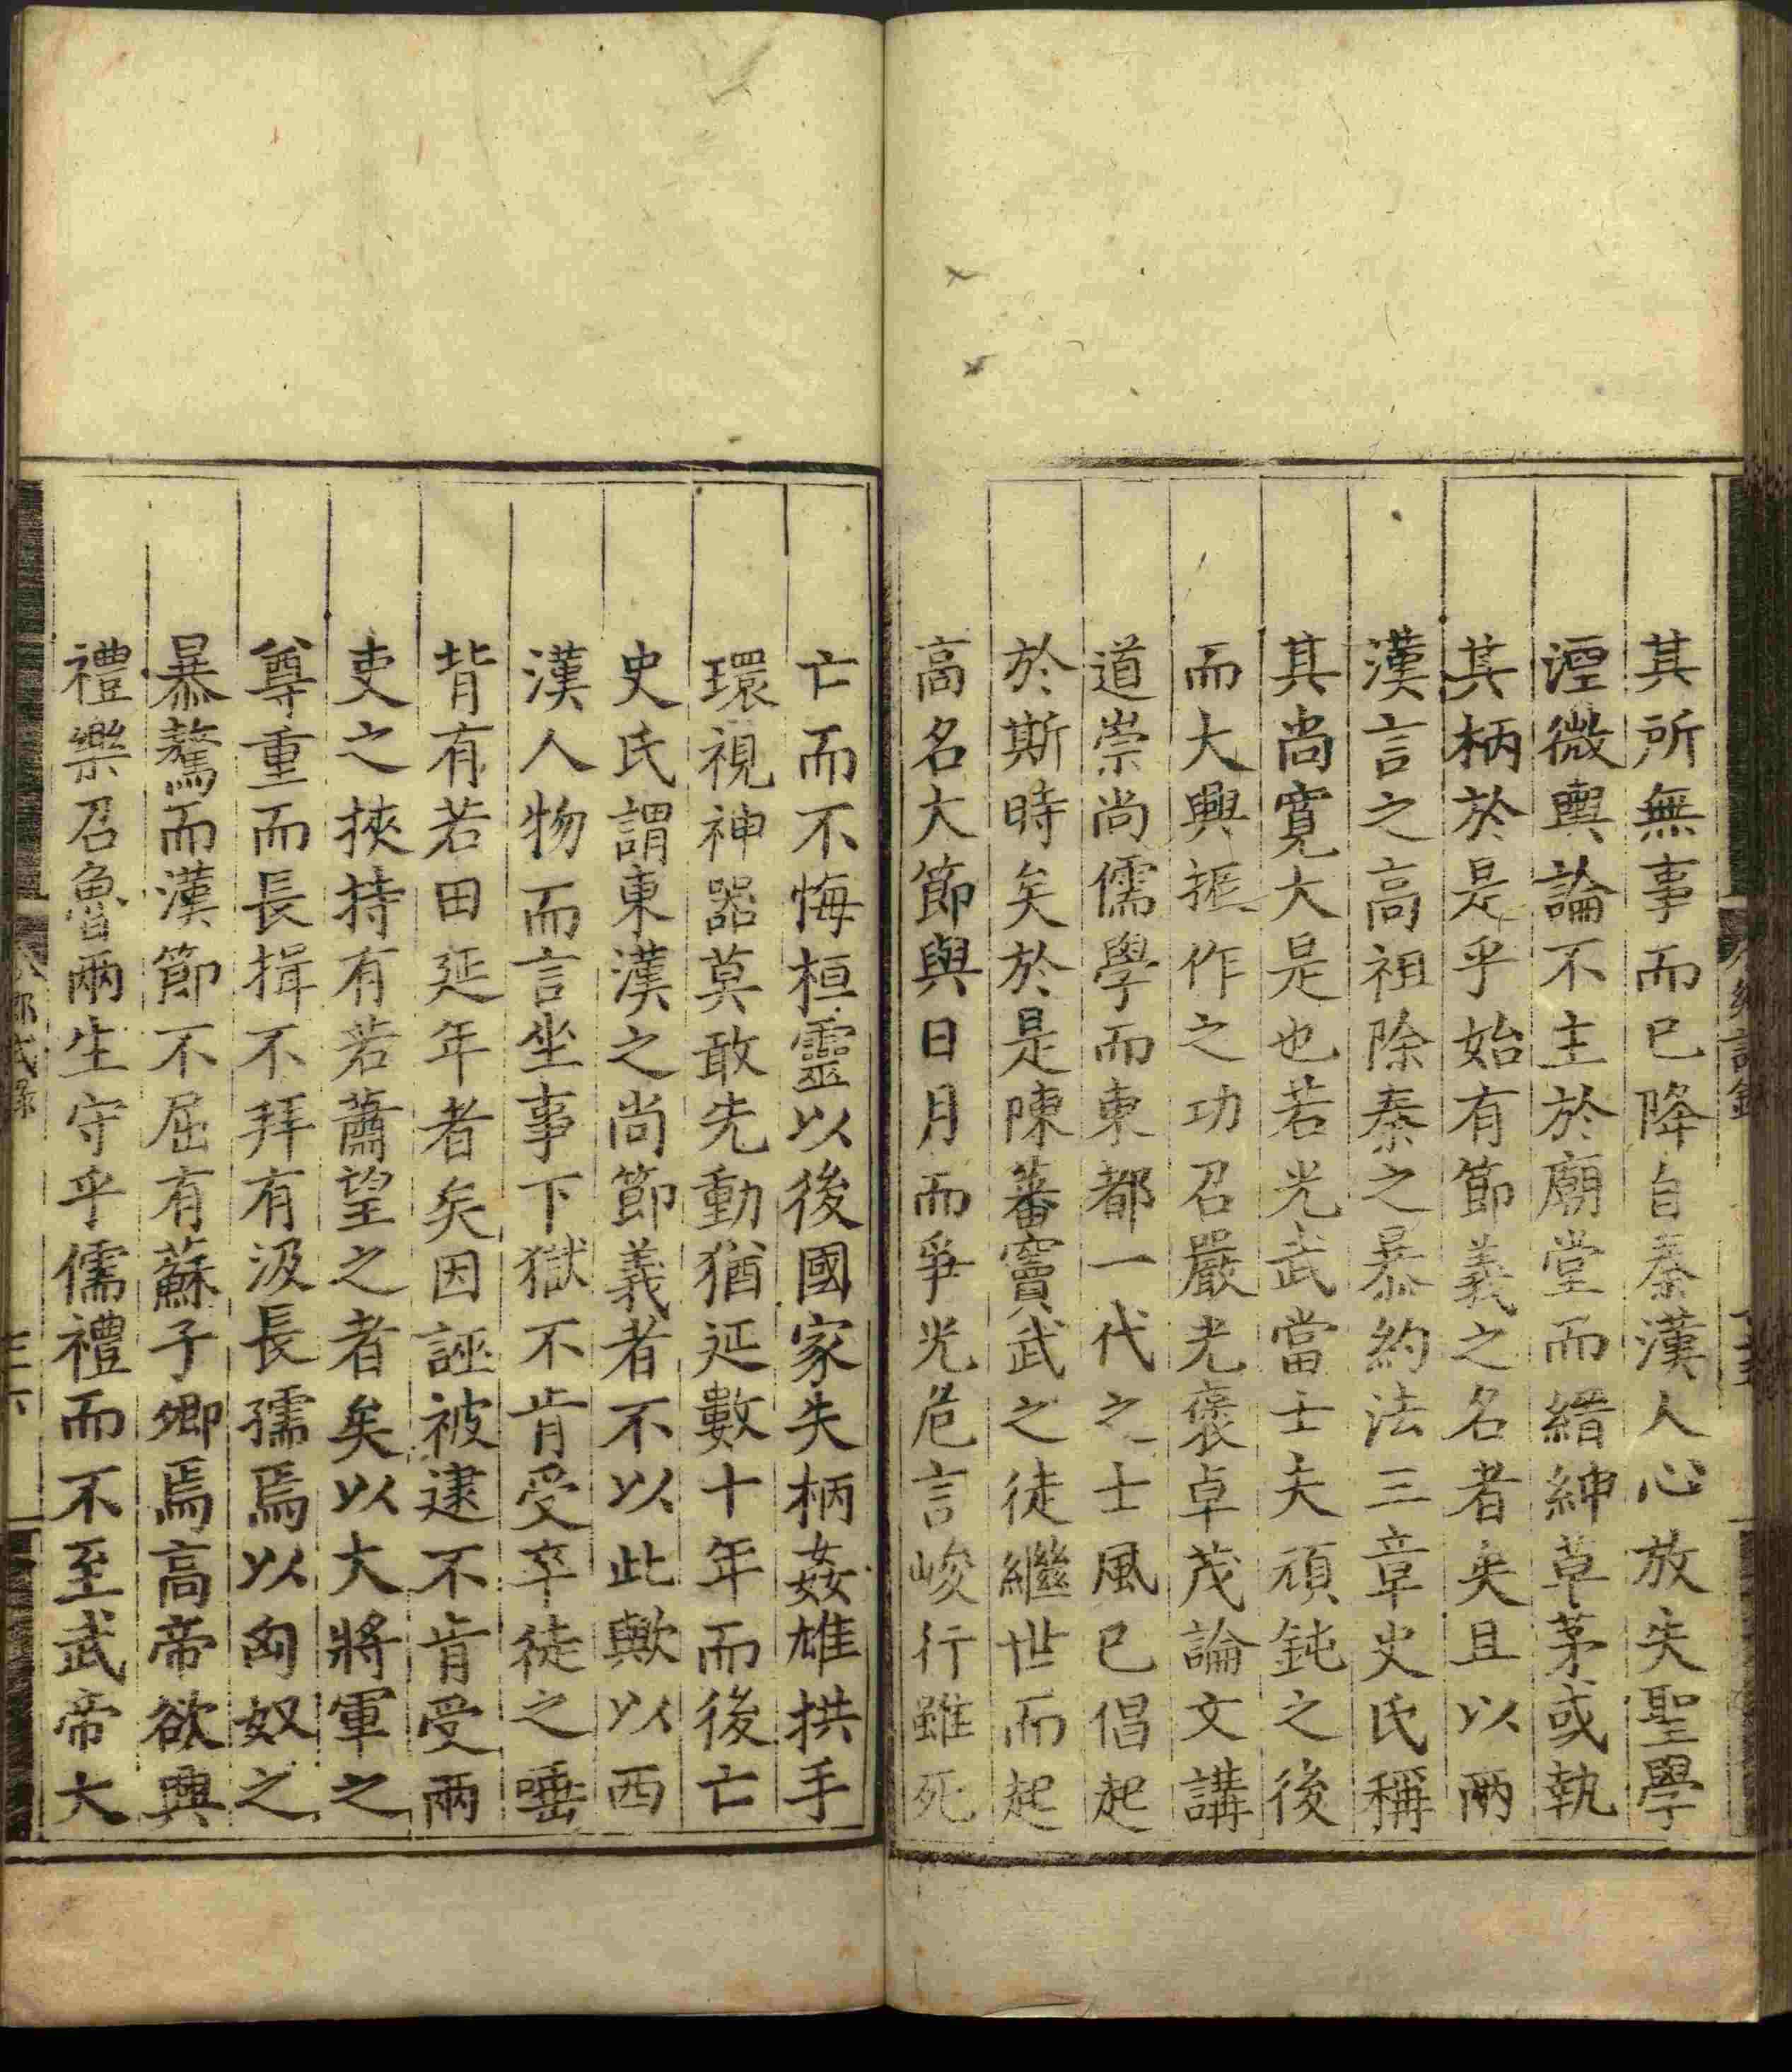 其所無事而已降自秦漢人心放失聖學
湮微輿論不主於廟堂而縉紳草茅或執
其柄於是乎始有節義之名者矣且以兩
漢言之高祖除秦之暴約法三章史氏稱
其尚寬大是也若光武當士夫頑鈍之後
而大興振作之功召嚴光褒卓茂論文講
道崇尚儒學而東都一代之士風已倡起
於斯時矣於是陳蕃竇武之徒繼世而起
高名大節與日月而爭光危言峻行雖死
亡而不悔桓靈以後國家失柄姦雄拱手
環視神器莫敢先動猶延數十年而後亡
史氏謂東漢之尚節義者不以此歟以西
漢人物而言坐事下獄不肯受卒徒之唾
背有若田延年者矣因誣被逮不肯受兩
吏之挾持有若蕭望之者矣以大將軍之
尊重而長揖不拜有汲長孺焉以匈奴之
暴驁而漢節不屈有蘇子卿焉高帝欲興
禮樂召魯兩生守乎儒禮而不至武帝大